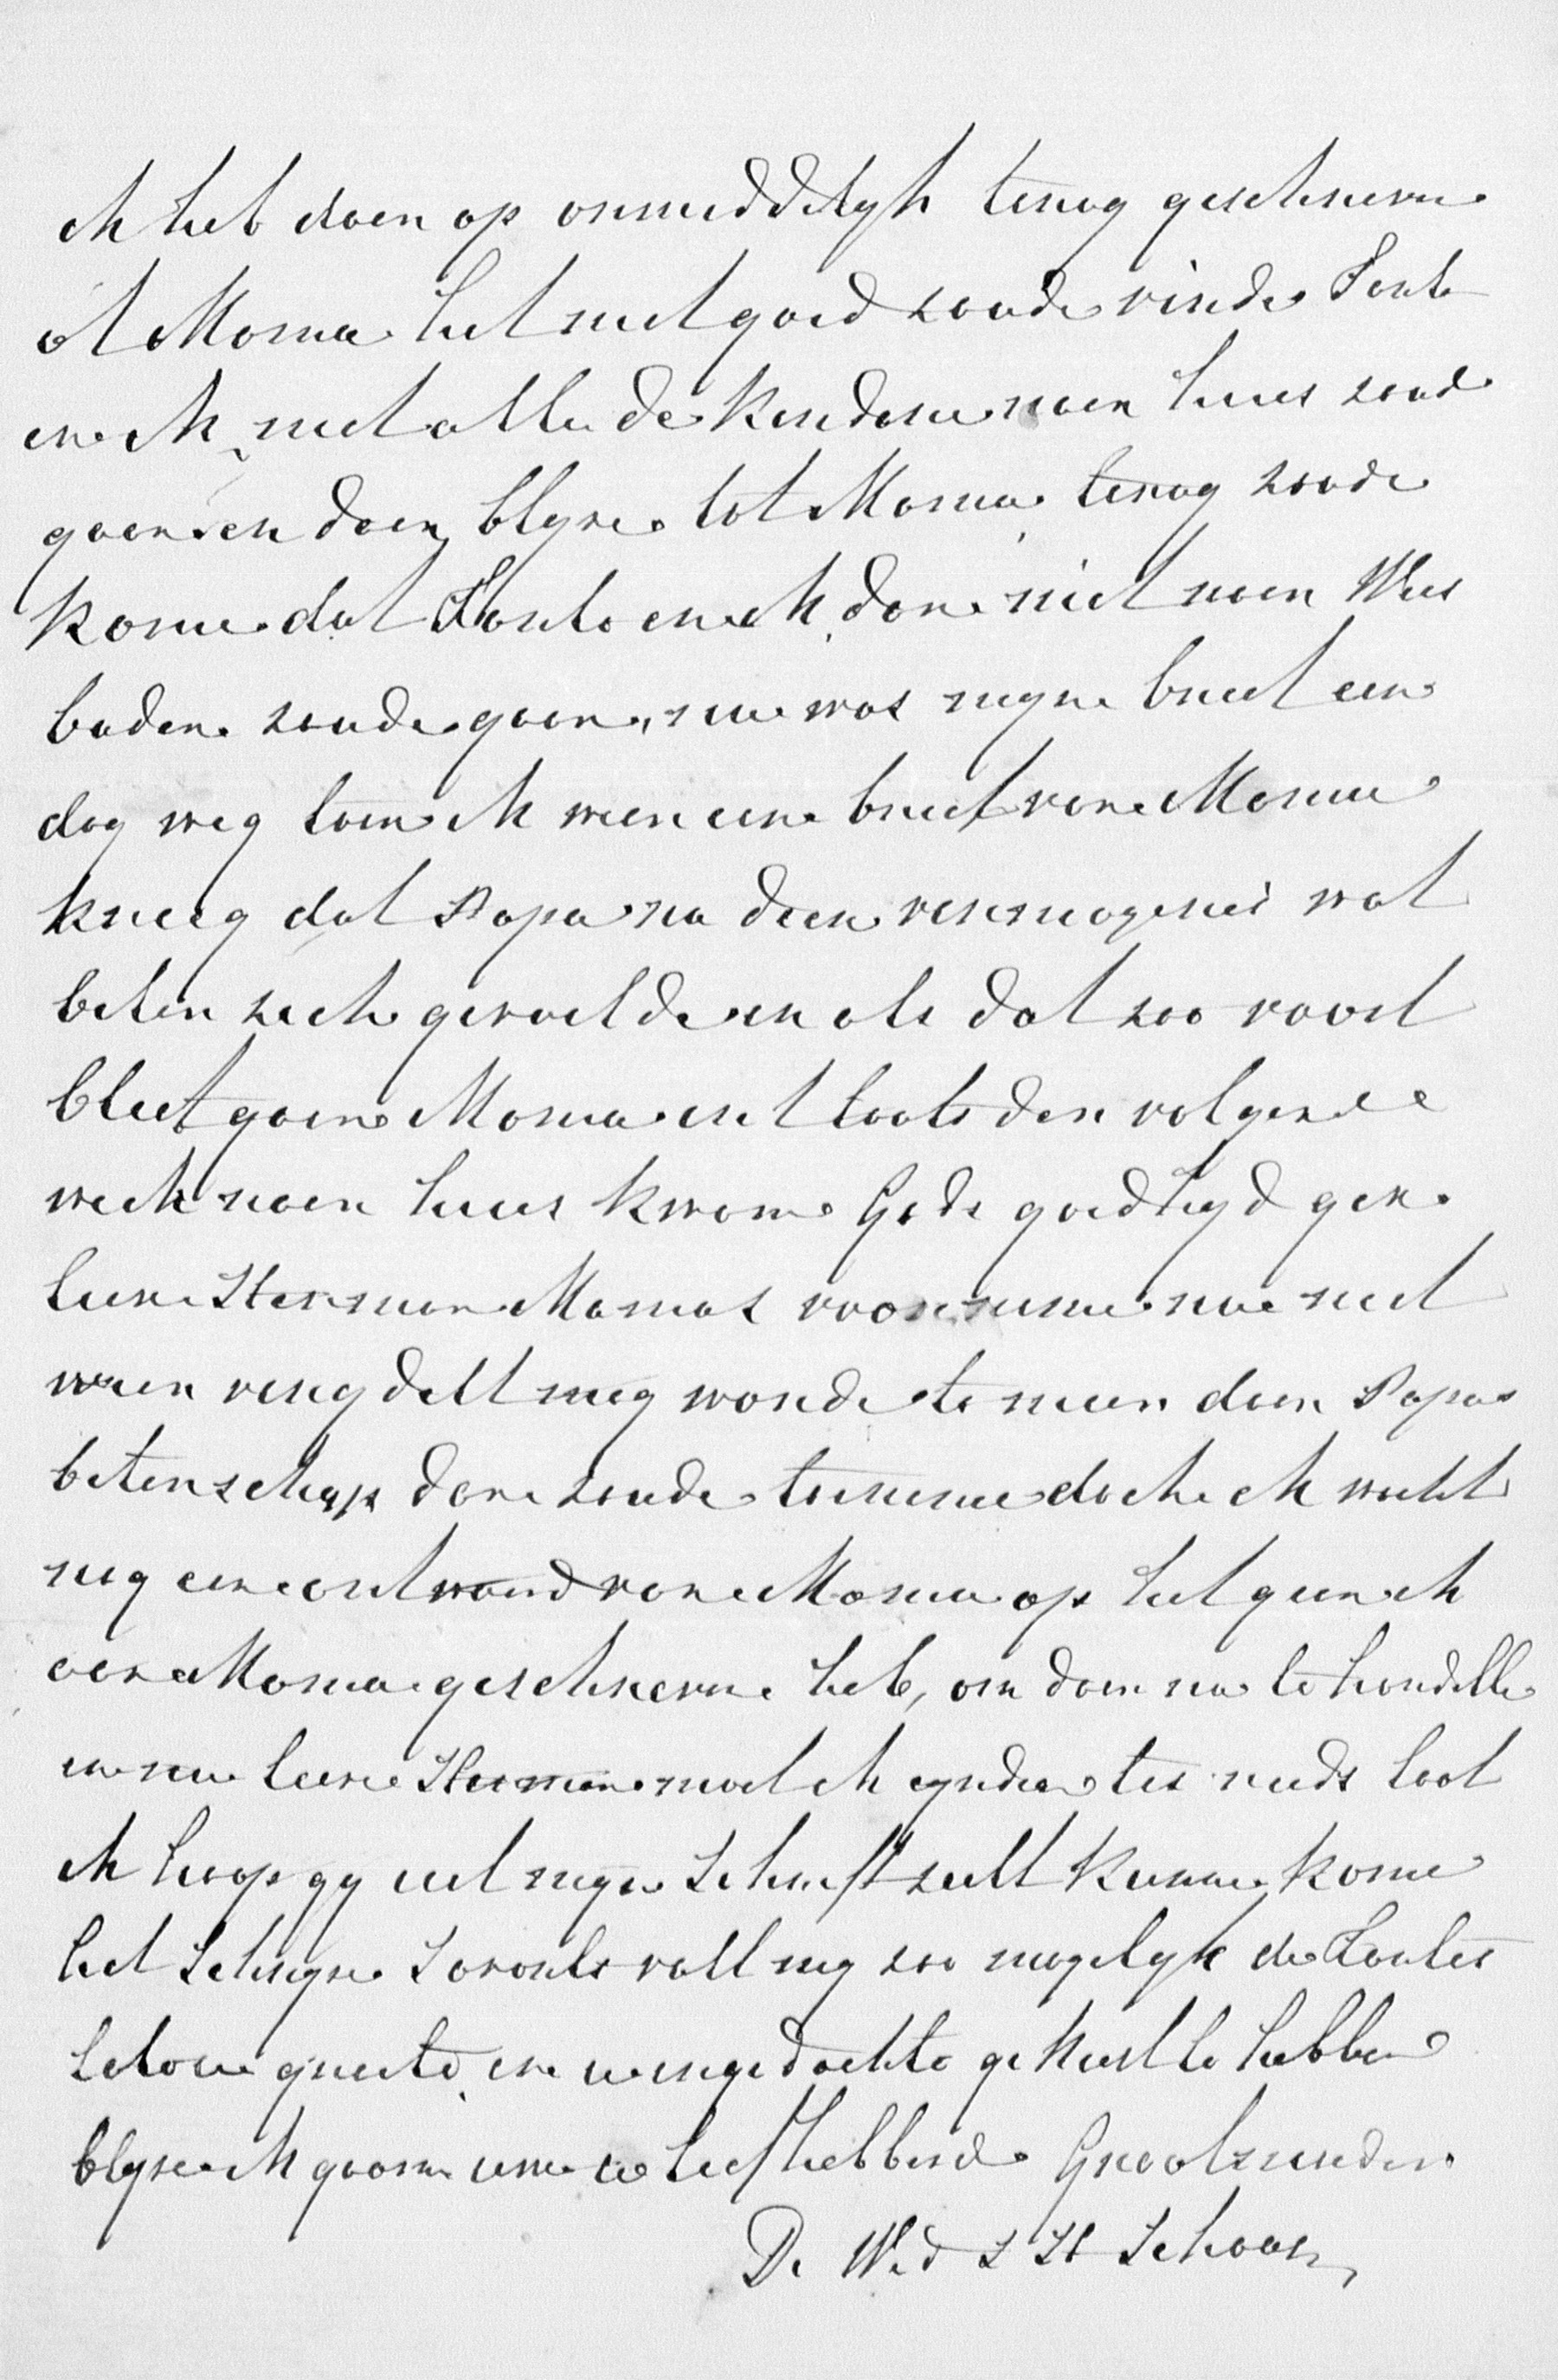 ik heb daar op onmiddelyk terug geschreve
of Mama het niet goed zoude vinde Tante
en ik met alle de Kindere naar huis zoude
gaan en daar blyve tot Mama terug zoude
Kome dat Tante en ik dan niet naar Wies
baden zoude gaan, nu was myn brief een
dag weg toen ik weer een brief van Mama
kreeg dat Papa na deen vermogenis wat
beter zich gevoelde en als dat zoo voort
bleef gaan Mama int laats der volgende
week naar huis kwam Gods goedhyd geve
lieve Herman Mamas voorneme nu niet
weer verydelt mog worde te meer daar Papas
beterschap dan zoude toeneme doch ik wacht
nog een antwoord van Mama op het geen ik
aan Mama geschreve heb, om daar na te handelle
en nu lieve Herman moet ik eyndige tis reeds laat
ik hoop gy uit myn Schrift zult Kunne Kome
het Schryve Savonts valt my zoo moyelyk de Tantes
late u groete en u in gedachte gekust te hebben
blyve ik gaarne uwe u liefhebbende Grootmoeder
De Wed S H Schoor